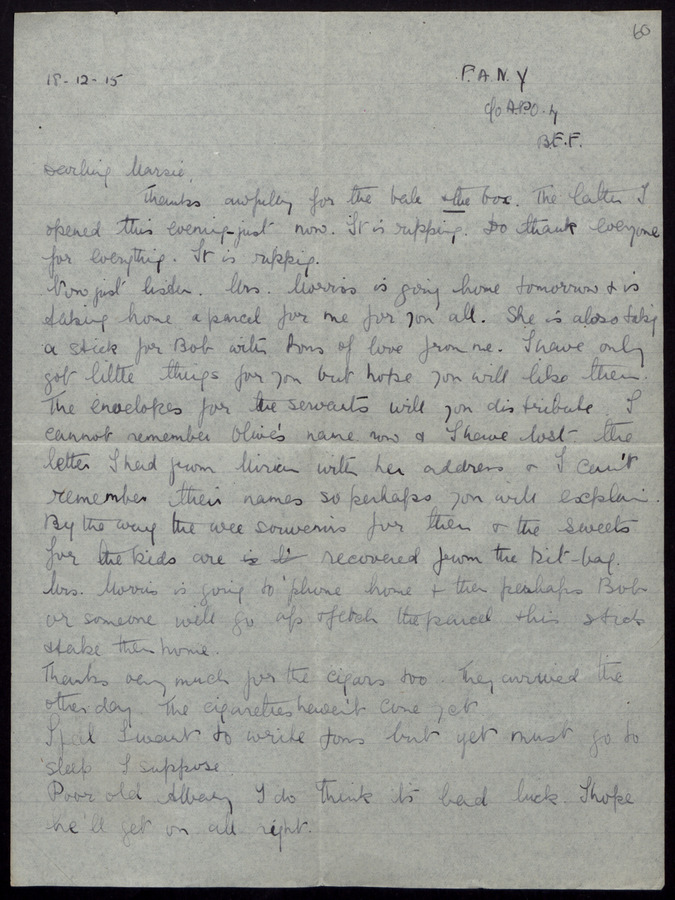 60
18-12-15
F.A.N.Y
c/o A.P.O. 4
B.E.F.
Darling
Thanks awfully for the bale & the box. The latter I
opened this evening just now. It is ripping. Do thank everyone
for everything. It is ripping.
Now just listen. Mrs. Morriss is going home tomorrow & is
taking home a parcel for me for you all. She is also taking
a stick for Bob with tons of love from me. I have only
got little things for you but hope you will like them.
The envelopes for the servants will you distribute. I
cannot remember Olive's name now & I have lost the
letter I had from with her address & I can't
remember their names so perhaps you will explain.
By the way the wee souvenirs for them & the sweets
for the kids are recovered from the kit-bag.
Mrs. Morris is going to 'phone home & then perhaps Bob
or someone will go up & fetch the parcel & his stick
& take them home.
Thanks very much for the cigars too. They arrived the
other day. The cigarettes haven't come yet
I feel I want to write tons but yet must go to
sleep I suppose.
Poor old I do think its bad luck. I hope
he'll get on all right.